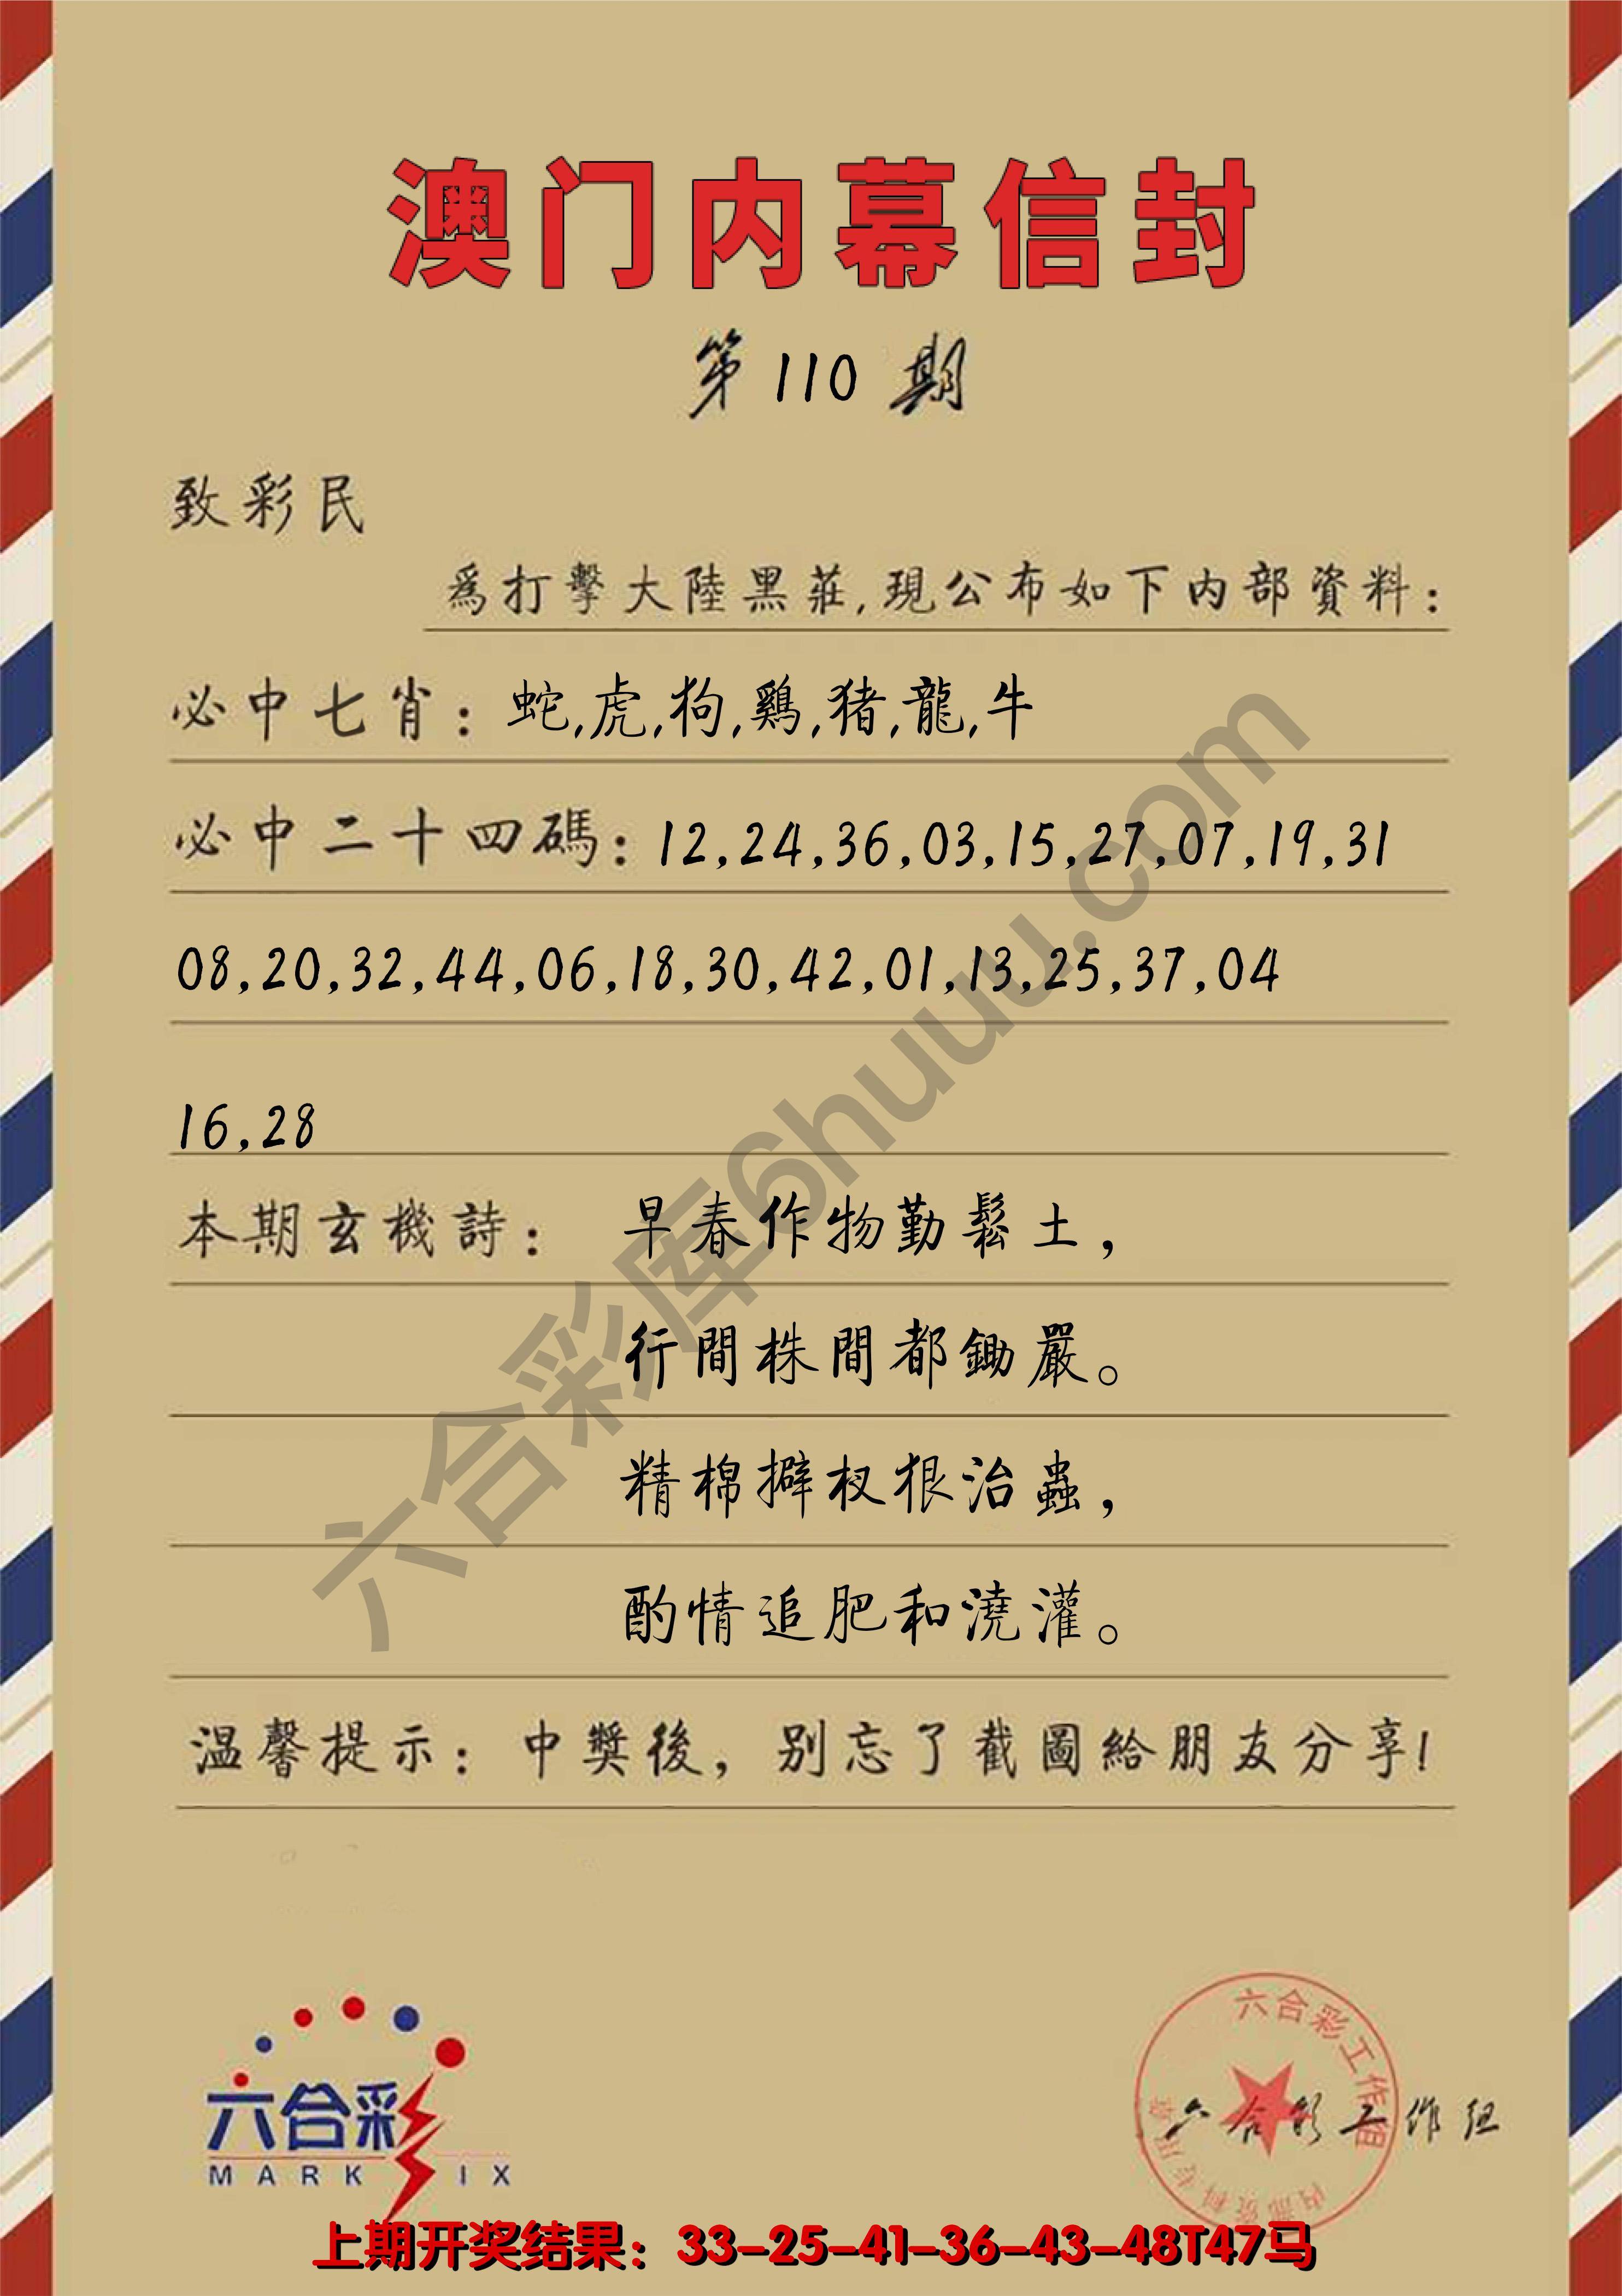 澳门内幕信封
第 110 期
致彩民
爲打擊大陸黑莊,現公布如下内部資料:
必中七肖: 蛇,虎,狗,鷄,猪,龍,牛
必中二十四碼: 12,24,36,03,15,27,07,19,31
08,20,32,44,06,18,30,42,01,13,25,37,04
16,28
本期玄機詩: 早春作物勤鬆土,
行間株間都鋤嚴。
精棉擗杈狠治蟲,
酌情追肥和澆灌。
温馨提示: 中獎後, 别忘了截圖給朋友分享!
六合彩库6huuu.com
六合彩
MARK IX
六合彩工作组
内部资料专用章
六合彩工作组
上期开奖结果: 33-25-41-36-43-48T47马